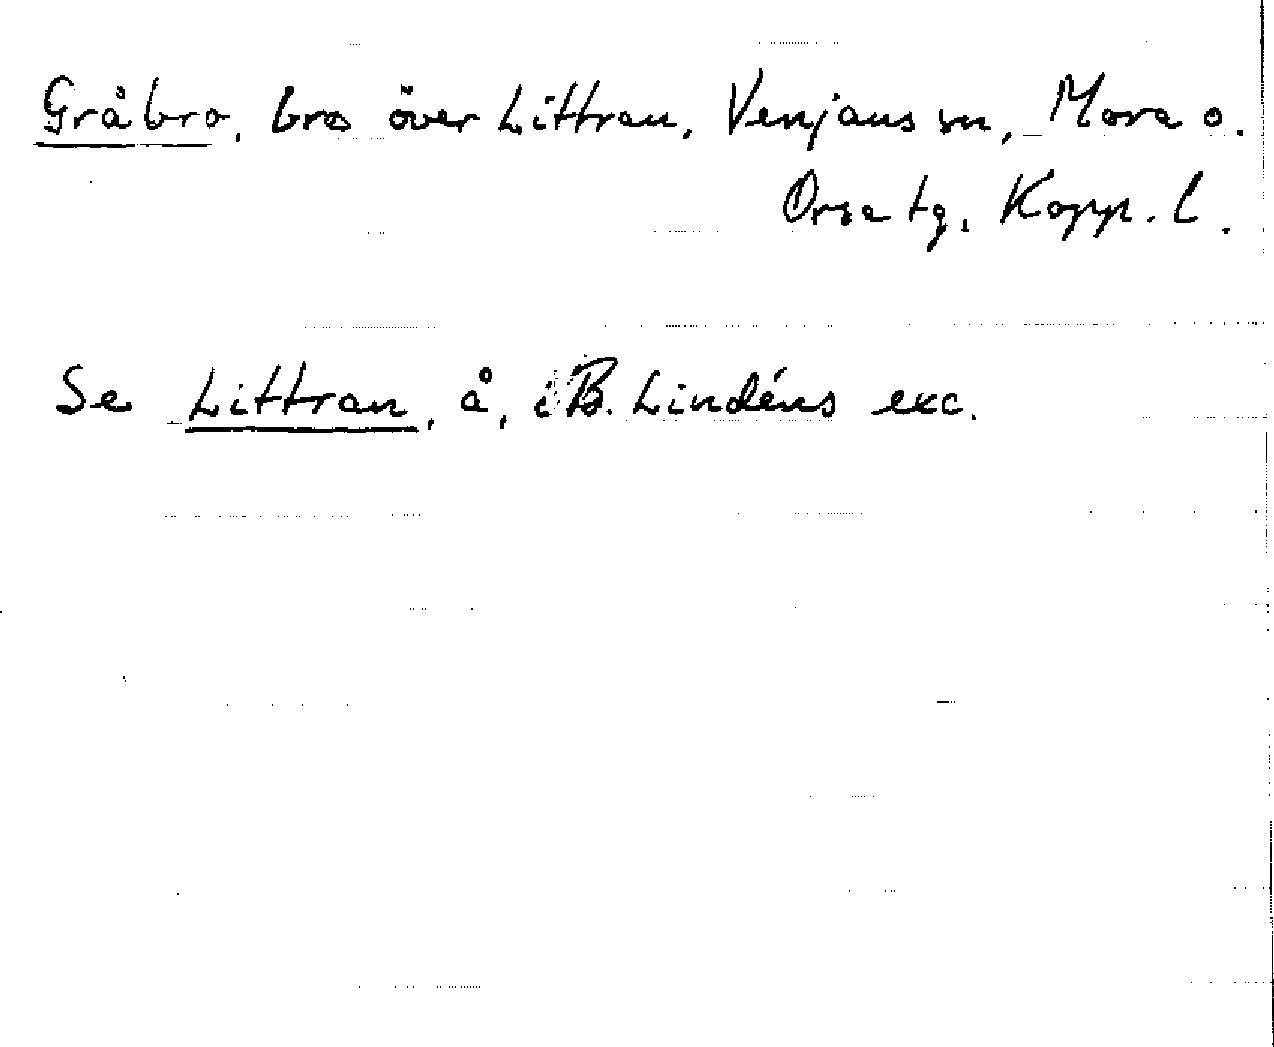 Gråbro, bro över Littran, Venjans sn, Mora o.
Orsa tg, Kopp. l.
Se Littran, å, i B. Lindéns exc.